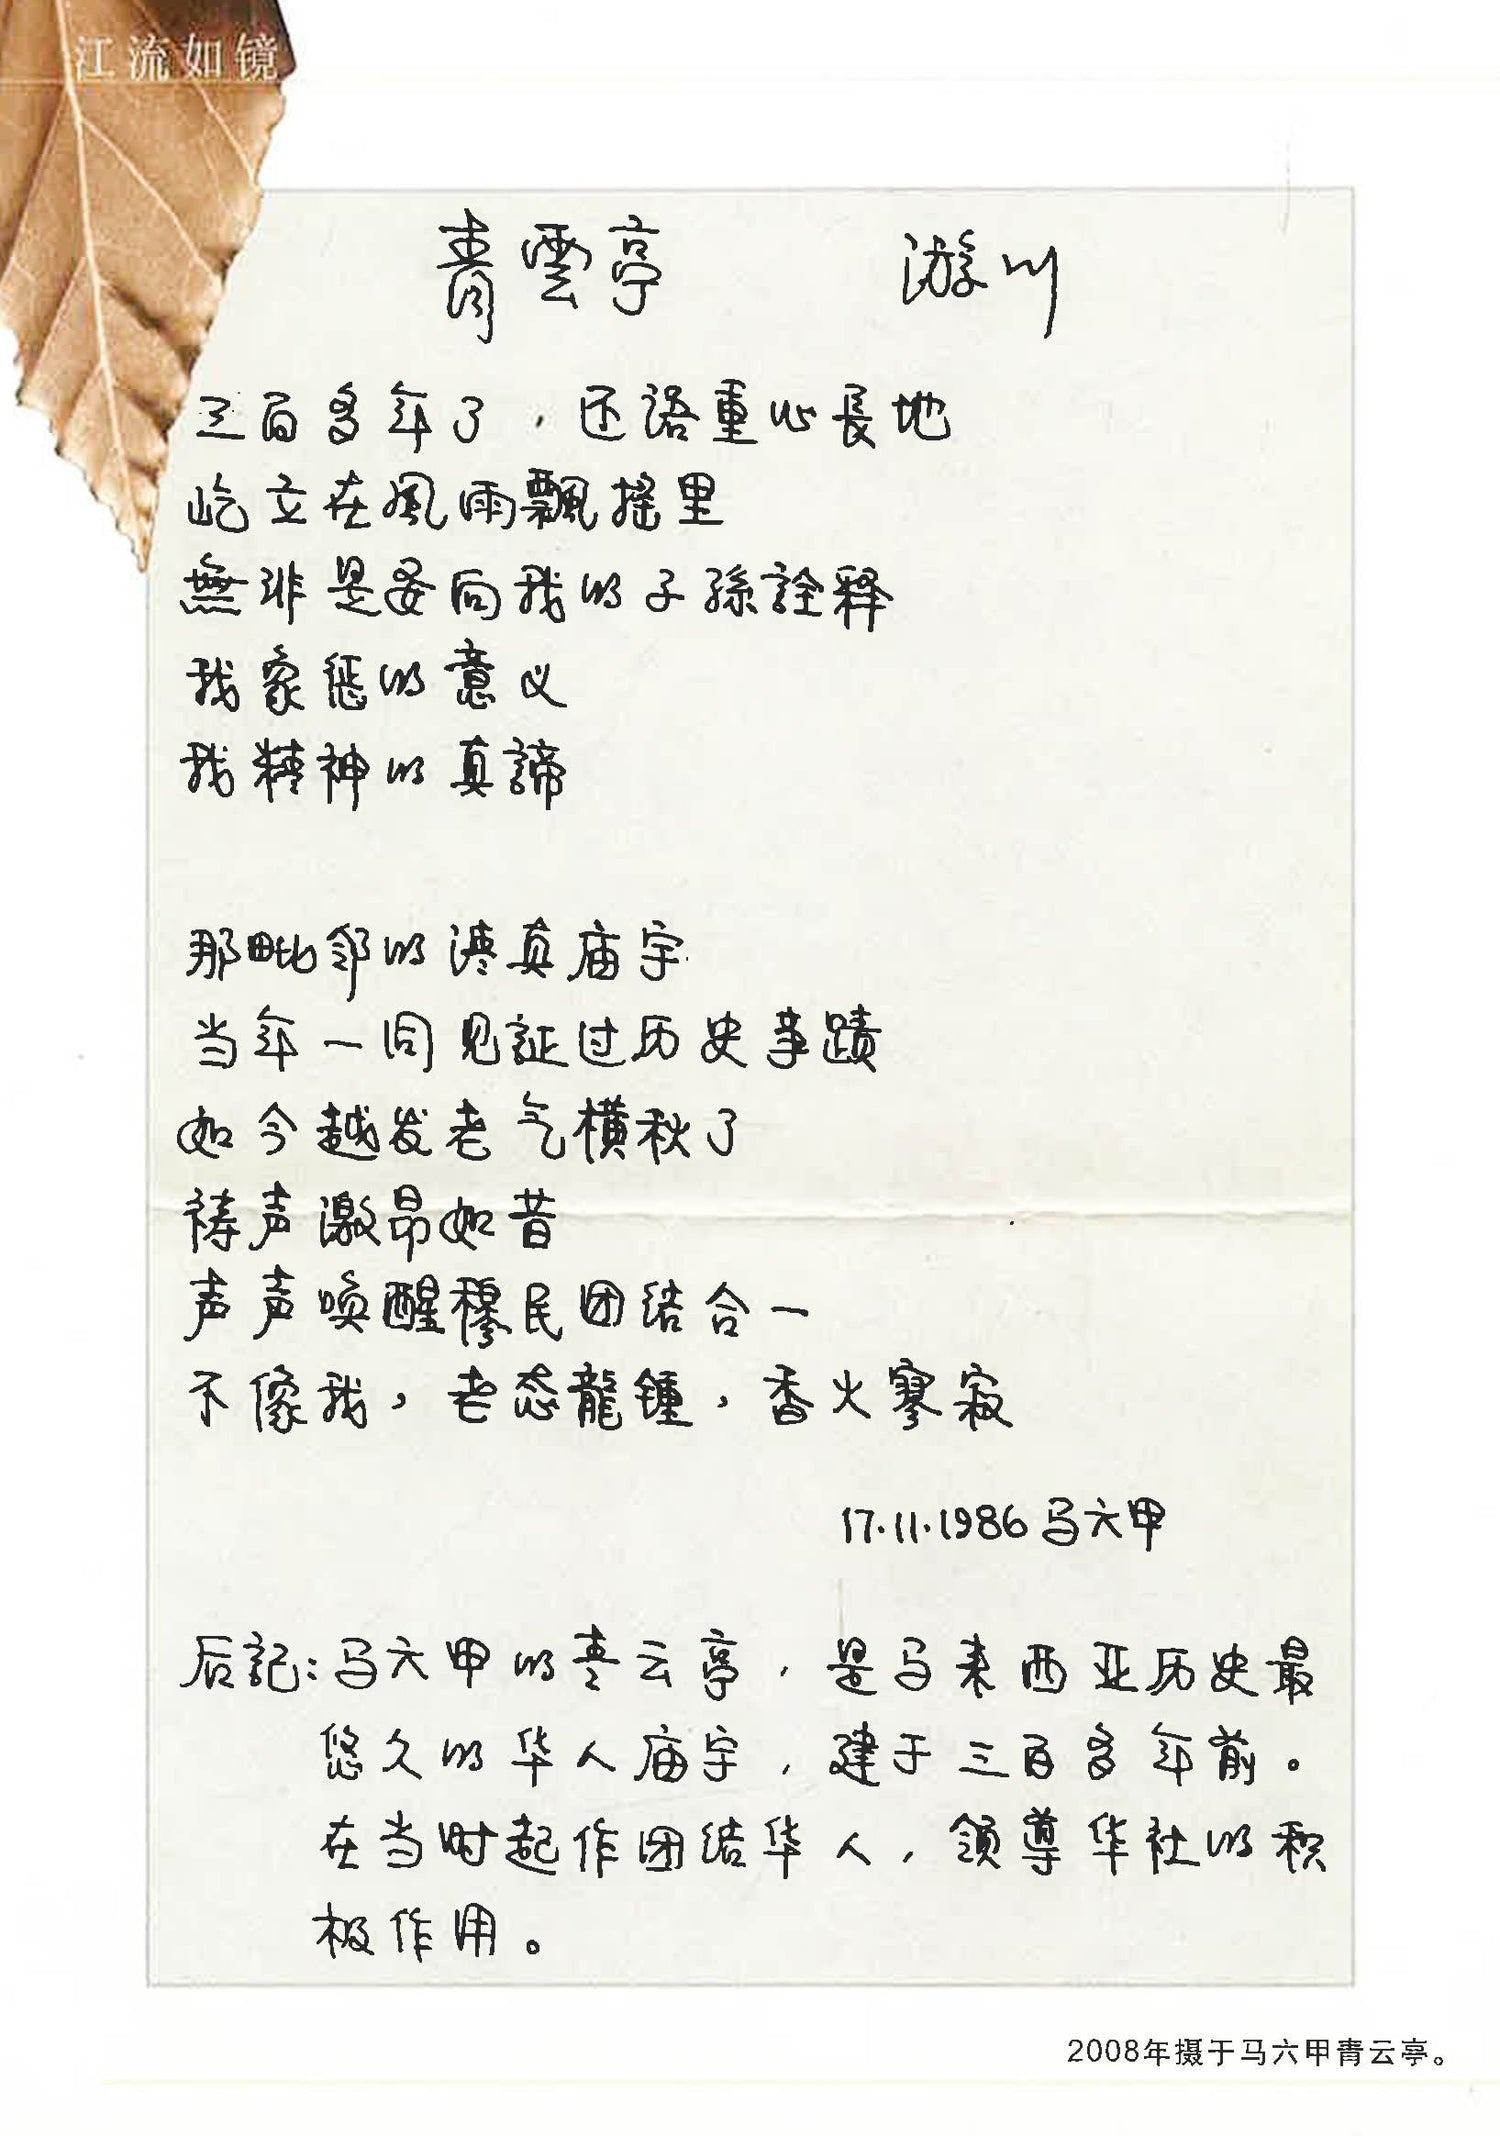 江流如镜
青雲亭 游川
三百多年了，还语重心長地
屹立在風雨飄搖里
無非是要向我的子孫詮释
我象徵的意义
我精神的真諦
那毗邻的清真庙宇
当年一同见証过历史事蹟
如今越发老气横秋了
祷声激昂如昔
声声唤醒穆民团结合一
不像我，老态龍鍾，香火寥寂
17.11.1986 马六甲
后記：马六甲的青云亭，是马来西亚历史最
悠久的华人庙宇，建于三百多年前。
在当时起作团结华人，领导华社的积
极作用。
2008年摄于马六甲青云亭。